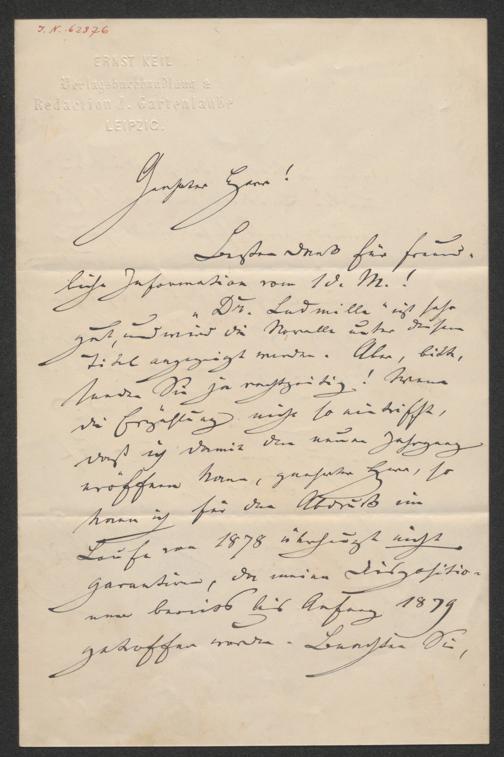 J. N. 62376
ERNST KEIL
Verlagsbuchhandlung &
Redaction d. Gartenlaube
LEIPZIG.
Geehrter Herr!
Besten Dank für freund-
liche Information vom 1 d. M.!
„Dr. Ludmilla“ ist sehr
gut, und wird die Novelle unter diesem
Titel angezeigt werden. Aber, bitte,
senden Sie ja rechtzeitig! Wenn
die Erzählung nicht so eintrifft,
daß ich damit den neuen Jahrgang
eröffnen kann, geehrter Herr, so
kann ich für den Abdruck im
Laufe von 1878 überhaupt nicht
garantiren, da meine Dispositio-
nen bereits bis Anfang 1879
getroffen worden. Beachten Sie,